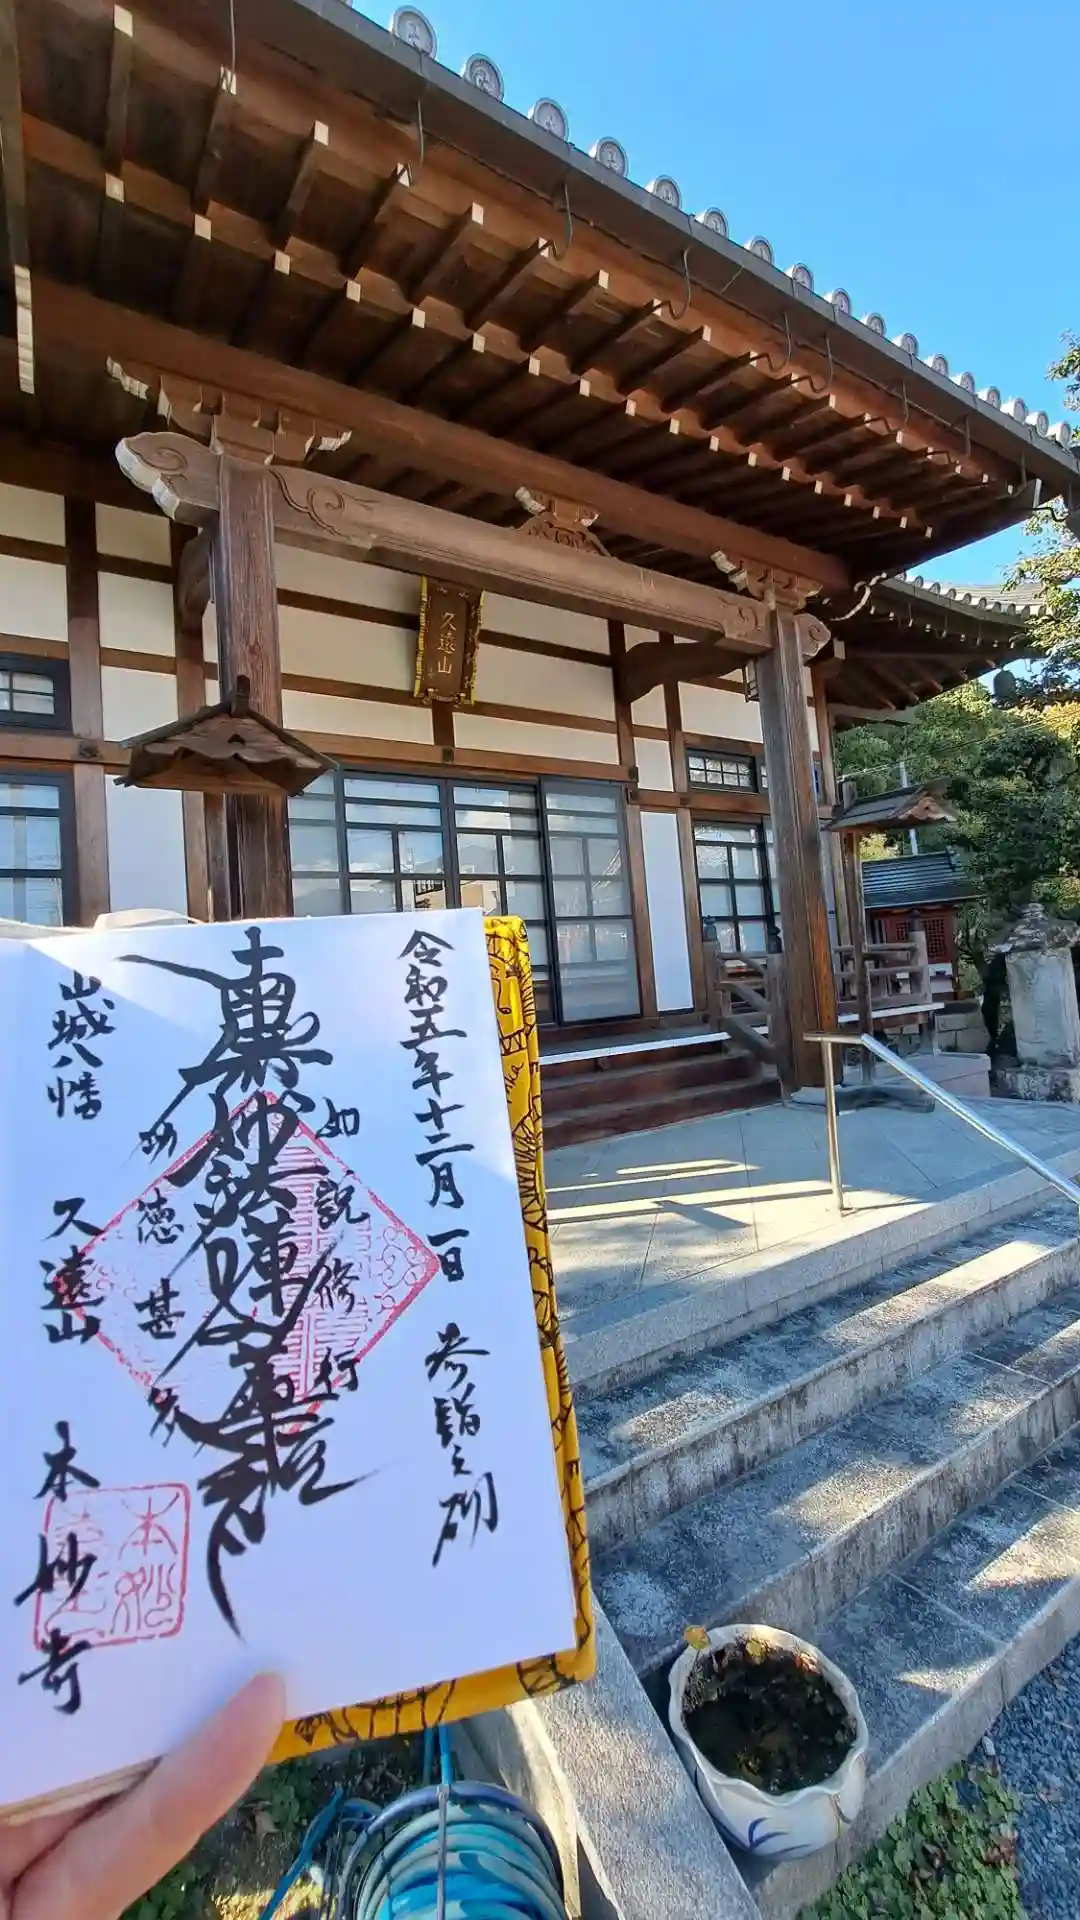 久遠山
令和五年十二月一日 参詣之砌
如説修行
南無妙法蓮華経
功徳甚多
山城八幡 久遠山 本妙寺
本妙